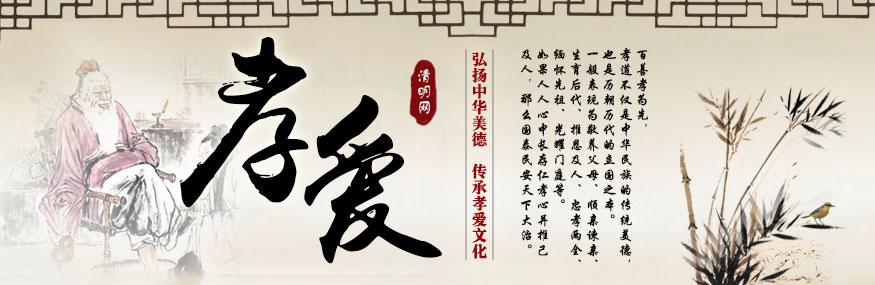 孝爱
清明网
弘扬中华美德 传承孝爱文化
百善孝为先，
孝道不仅是中华民族的传统美德，
也是历朝历代的立国之本。
一般表现为敬养父母、顺亲谏亲、
生育后代、推恩及人、忠孝两全、
缅怀先祖、光耀门庭等。
如果人人心中长存仁孝心并推己
及人，那么国泰民安天下大治。